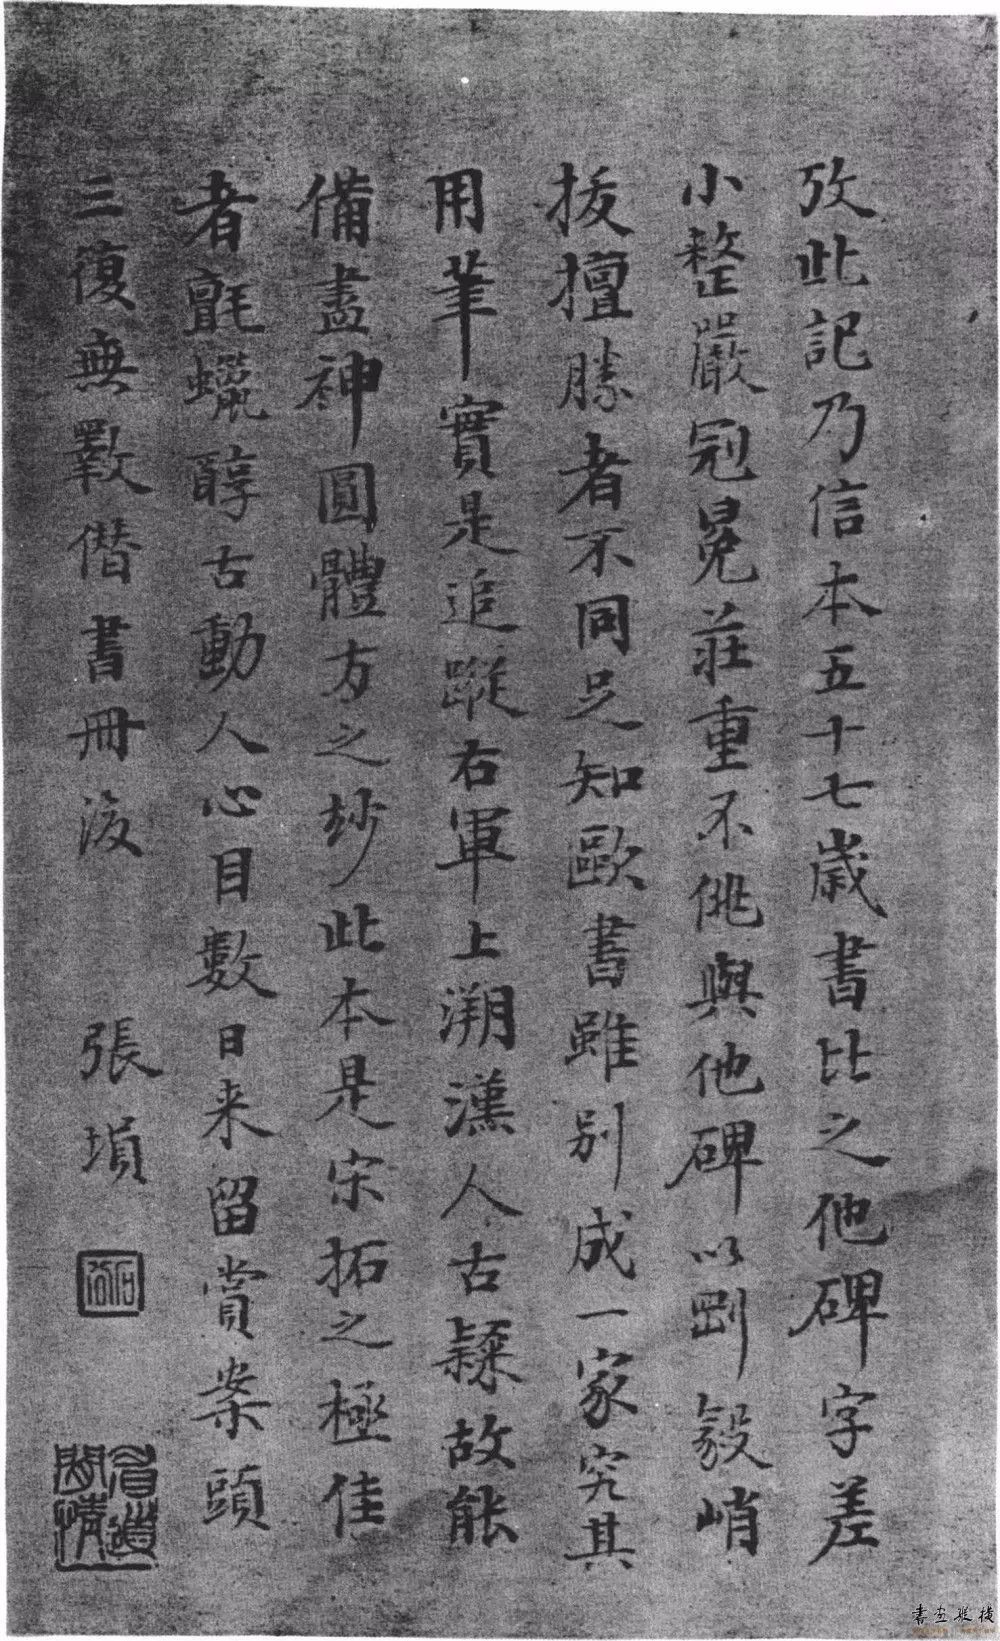 攷此記乃信本五十七歲書比之他碑字差
小整嚴冠冕莊重不佻與他碑以剛毅峭
拔擅勝者不同足知歐書雖別成一家究其
用筆實是追蹤右軍上溯漢人古隸故能
備盡神圓體方之妙此本是宋拓之極佳
者氈蠟醇古動人心目數日来留賞案頭
三復無斁借書冊後 張塤
書画縱橫